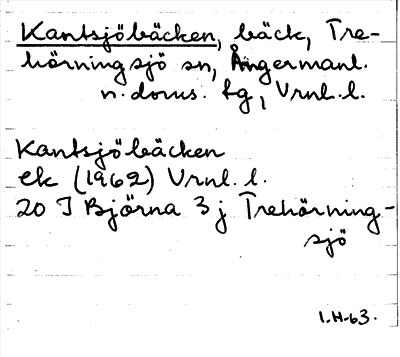 Kantsjöbäcken, bäck, Tre-
hörningsjö sn, Ångermanl.
n. doms. tg, Vrnl. l.
Kantsjöbäcken
ek (1962) Vrnl. l.
20 I Björna 3 j Trehörning-
sjö
I.H-63.